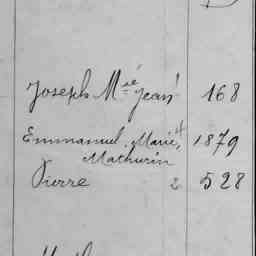 Joseph Mie Jean 168
Emmanuel, Marie, 4 1879
Mathurin
Pierre 2 528